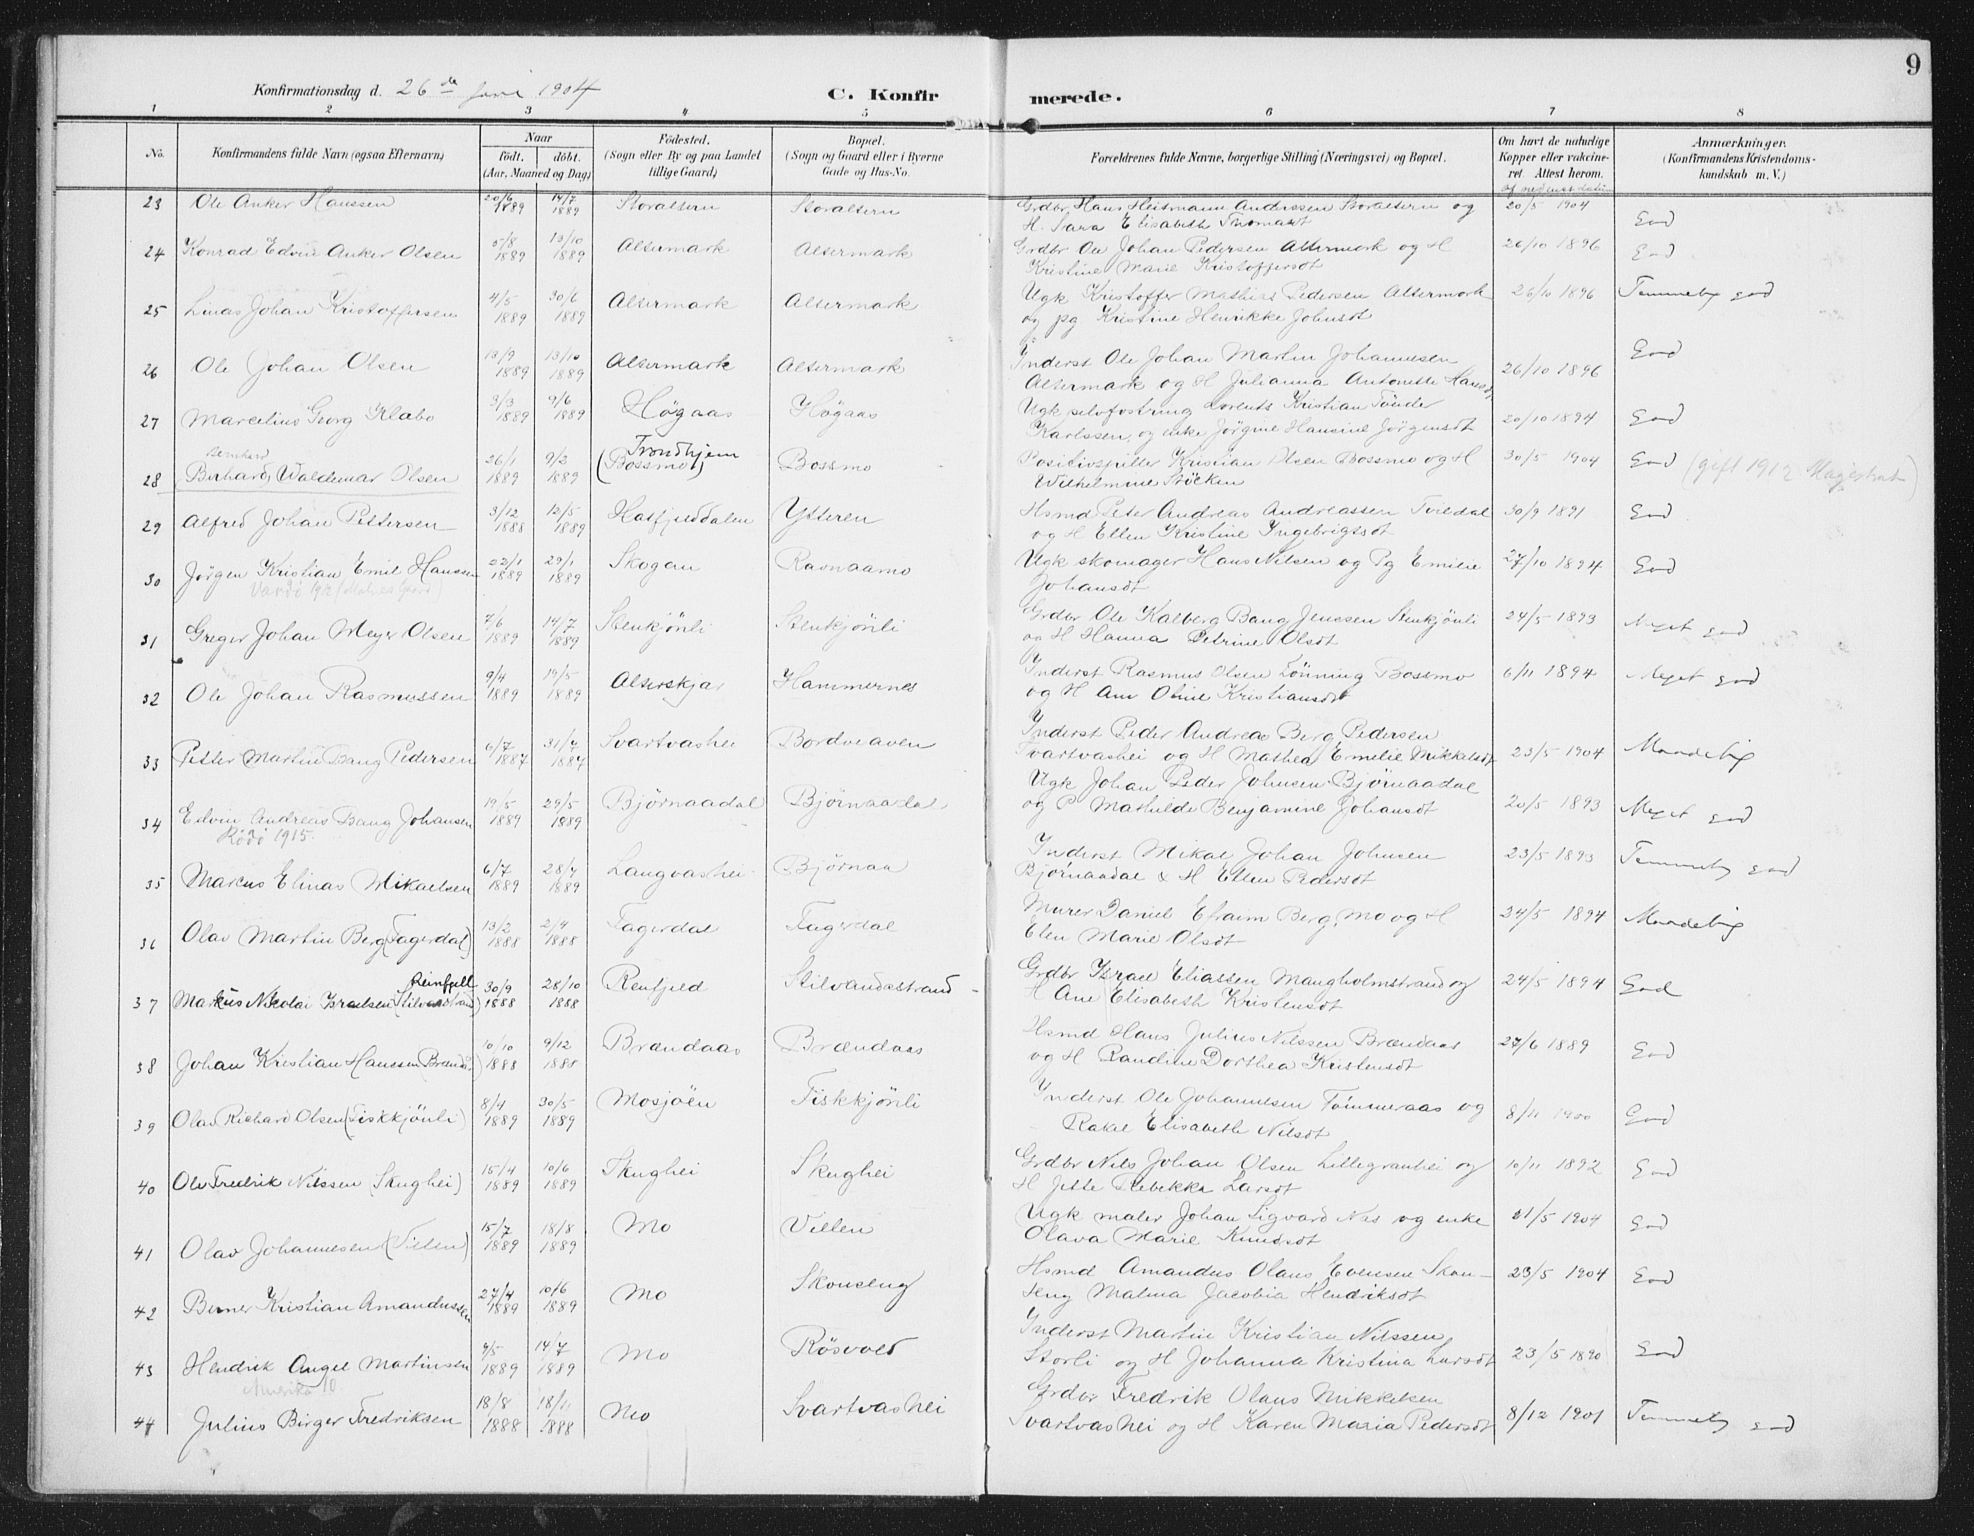 9
Konfirmationsdag d. 26de Juni 1904
C. Konfir merede.
1 2 3 4 5 6 7 8
No. Konfirmandens fulde Navn (ogsaa Efternavn) Naar født. døbt. (Aar, Maaned og Dag) Fødested. (Sogn eller By og paa Landet tillige Gaard) Bopæl. (Sogn og Gaard eller i Byerne Gade og Hus-No. Forældrenes fulde Navne, borgerlige Stilling (Næringsvei) og Bopæl. Om havt de naturlige Kopper eller vakcineret. Attest herom. Anmærkninger. (Konfirmandens Kristendomskundskab m. V.)
23 Ole Anker Hanssen 20/6 1889 14/7 1889 Storaltern Storaltern Grdbr Hans Heitmann Anderssen Storaltern og 20/5 1904 God
H. Sara Elisabeth Thomasdt
24 Konrad Edvin Anker Olsen 5/8 1889 13/10 1889 Altermark Altermark Grdbr Ole Johan Pedersen Altermark og H 26/10 1896 God
Kristine Marie Kristoffersdt
25 Linas Johan Kristoffersen 4/5 1889 30/6 1889 Altermark Altermark Ugk Kristoffer Mathias Pedersen Altermark 26/10 1896 Temmelig god
og pg Kristine Henrikke Johnsdt
26 Ole Johan Olsen 13/9 1889 13/10 1889 Altermark Altermark Inderst Ole Johan Martin Johannesen 26/10 1896 God
Altermark og H Julianna Antonette Hansdt
27 Marcelius Georg Klæbo 3/3 1889 9/6 1889 Høgaas Høgaas Ugk Lorents Kristian Tønder 20/10 1894 God
Karlssen og enke Jørgine Hansine Jørgensdt
Bernhard Trondhjem
28 Berhard Waldemar Olsen 26/1 1889 9/2 1889 (Bossmo) Bossmo Positivspiller Kristian Olsen Bossmo og H 30/5 1904 God (gift 1912 Magistrat)
Wilhelmine Støcken
29 Alfred Johan Pettersen 3/12 1888 12/5 1889 Hatfjelddalen Ytteren Hsmd Peter Andreas Andreassen Tvildal 30/9 1891 God
og H Ellen Kristine Ingebrigtsdt
30 Jørgen Kristian Emil Hanssen 22/1 1889 29/1 1889 Skogan Ravnaamo Ugk skomager Hans Nilsen og Pg Emilie 27/10 1894 God
Johansdt
31 Greger Johan Meyer Olsen 7/6 1889 14/7 1889 Stenkjønli Stenkjønli Grdbr Ole Kalberg Bang Jenssen Stenkjønli 24/5 1893 Meget god
og H Hanna Petrine Olsdt
32 Ole Johan Rasmussen 9/4 1889 19/5 1889 Alterskjær Hammernes Inderst Rasmus Olsen Lønning Bossmo 6/11 1894 Meget god
og H Ane Oline Kristiansdt
33 Petter Martin Bang Pedersen 6/7 1887 31/7 1887 Svartvashei Bordveaven Inderst Peder Andreas Berg Pedersen 23/5 1904 Maadelig
Svartvashei og H Mathea Emelie Mikkelsdt
34 Edvin Andreas Bang Johansen 19/5 1889 29/5 1889 Bjørnaadal Bjørnaadal Ugk Johan Peder Johnsen Bjørnaadal 20/5 1893 Meget god
Rødø 1915. og P Mathilde Benjamine Johansdt
35 Marcus Elinas Mikaelsen 6/7 1889 28/7 1889 Langvashei Bjørnaa Inderst Mikal Johan Johnsen 23/5 1893 Temmelig god
Bjørnaadal & H Ellen Pedersdt
36 Olav Martin Berg (Fagerdal) 13/2 1888 2/4 1888 Fagerdal Fagerdal Murer Daniel Efraim Berg, Mo og H 24/5 1894 Maadelig
Elen Marie Olsdt
Reinfjell
37 Markus Nicolai Israelsen (Stilvandstrand) 30/9 1888 28/10 1888 Renfjeld Stilvandestrand Grdbr Israel Eliassen Mangholmstrand og 24/5 1894 God
H Ane Elisabeth Kristensdt
38 Johan Kristian Hanssen Brænd.) 10/10 1888 9/12 1888 Brændaas Brændaas Hsmd Hans Julius Nilssen Brændaas 27/6 1889 God
og H Randine Dorthea Kristensdt
39 Olav Richard Olsen (Fiskkjönli) 8/4 1889 30/5 1889 Mosjøen Fiskkjönli Inderst Ole Johannesen Tømmeraas og 8/11 1900 God
Rakel Elisabeth Nilsdt
40 Ole Fredrik Nilssen (Skughei) 15/4 1889 10/6 1889 Skughei Skughei Grdbr Nils Johan Olsen Lillegranhei og 10/11 1892 God
H Jette Rebekka Larsdt
41 Olav Johannesen (Villen) 15/7 1889 18/8 1889 Mo Villen Ugk maler Johan Sigvard Nes og enke 21/5 1904 God
Olava Marie Knudsdt
42 Berner Kristian Amandussen 27/4 1889 10/6 1889 Mo Skonseng Hsmd Amandus Olaus Evensen Skon- 23/5 1904 God
seng Malma Jacobia Hendriksdt
43 Hendrik Angel Martinsen 9/5 1889 14/7 1889 Mo Røsvold Inderst Martin Kristian Nilssen 23/5 1890 God
Amerika 10. Storli og H Johanna Kristina Larsdt
44 Julius Birger Fredriksen 18/8 1888 18/11 1888 Mo Svartvashei Grdbr Fredrik Olaus Mikkelsen 8/12 1901 Temmelig god
Svartvashei og H Karen Maria Pedersdt